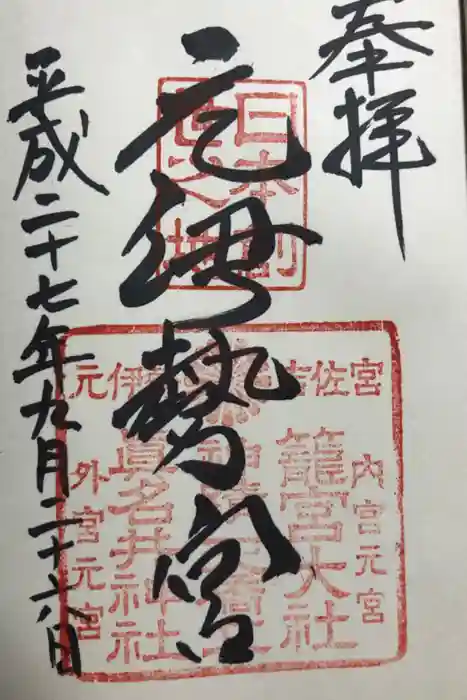 奉拝
元伊勢宮
平成二十七年九月二十六日
日本創
世之地
宮佐吉
伊元
内宮元宮
籠宮大社
眞名井神社
外宮元宮